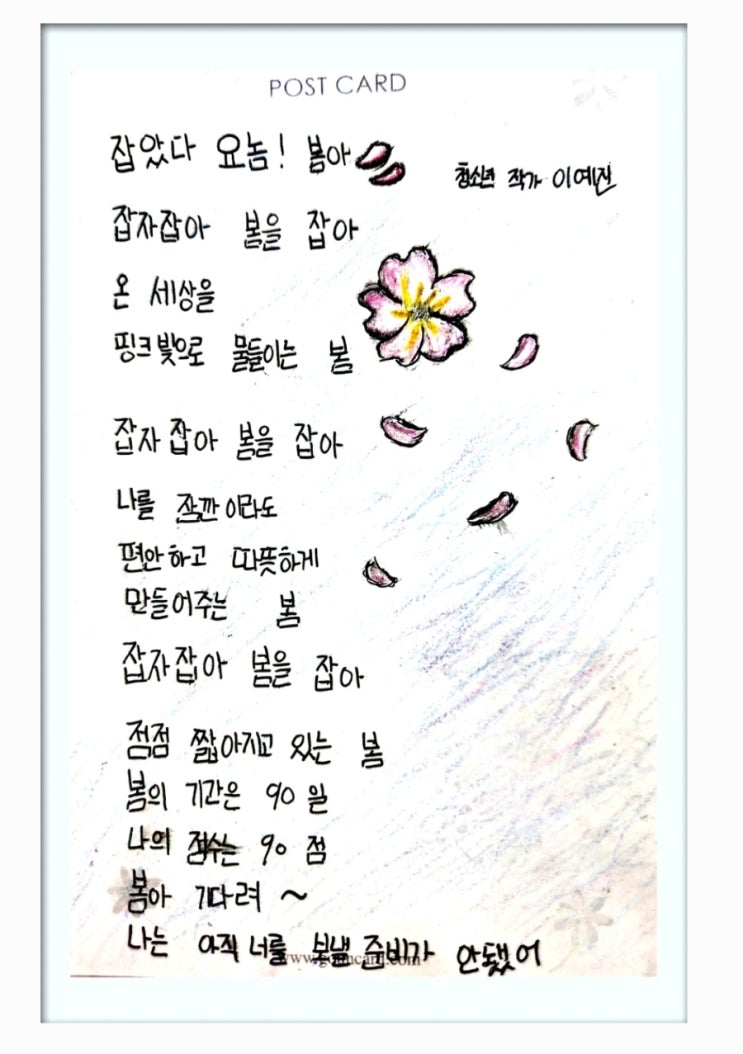 POST CARD
잡았다 요놈! 봄아
청소년 작가 이예진
잡자잡아 봄을 잡아
온 세상을
핑크빛으로 물들이는 봄
잡자 잡아 봄을 잡아
나를 잠깐이라도
편안하고 따뜻하게
만들어주는 봄
잡자잡아 봄을 잡아
점점 짧아지고 있는 봄
봄의 기간은 90일
나의 점수는 90점
봄아 기다려 ~
나는 아직 너를 보낼 준비가 안됐어